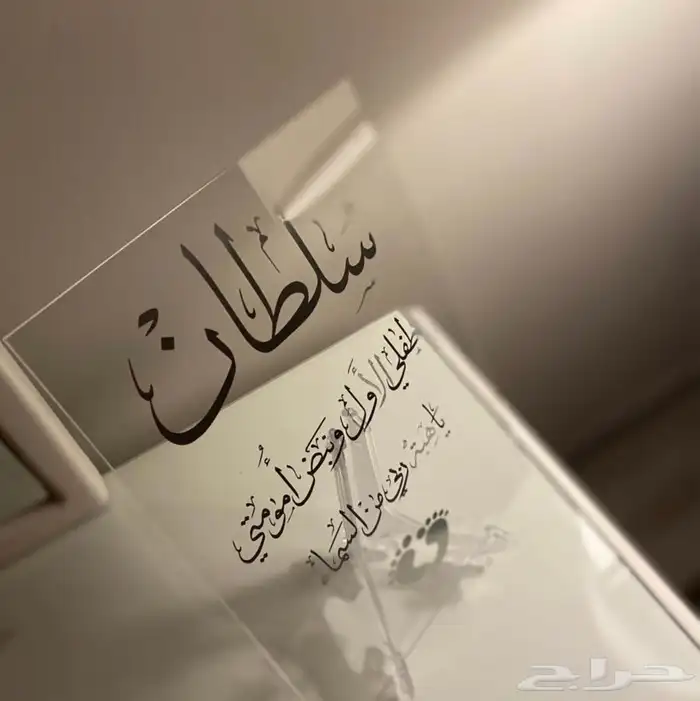 سلطان
طفلي الأول ونبض أمومتي
ياهبة ربي من السما
حراج